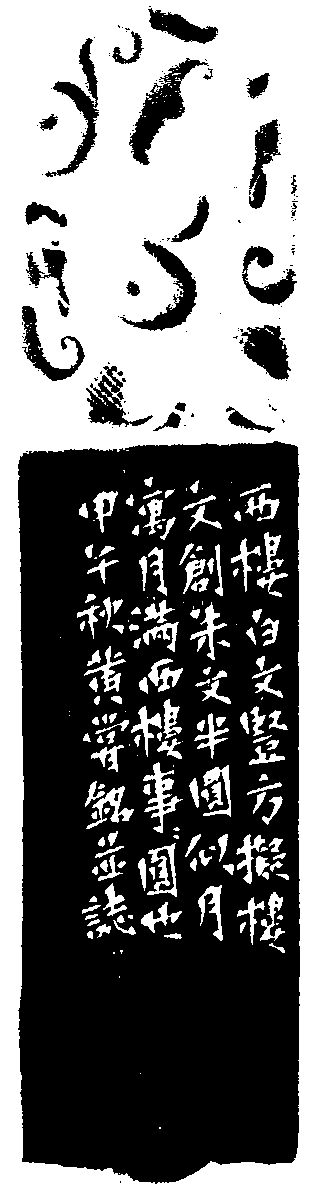 西樓白文豎方擬樓
文創朱文半圓似月
寓月滿西樓事圓也
甲午秋黃嘗銘並誌